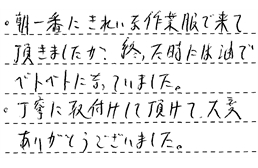 。朝一番にきれいな作業服で来て
頂きましたが、終った時には油で
ベトベトに成っていました。
。丁寧に取付けして頂けて大変
ありがとうございました。